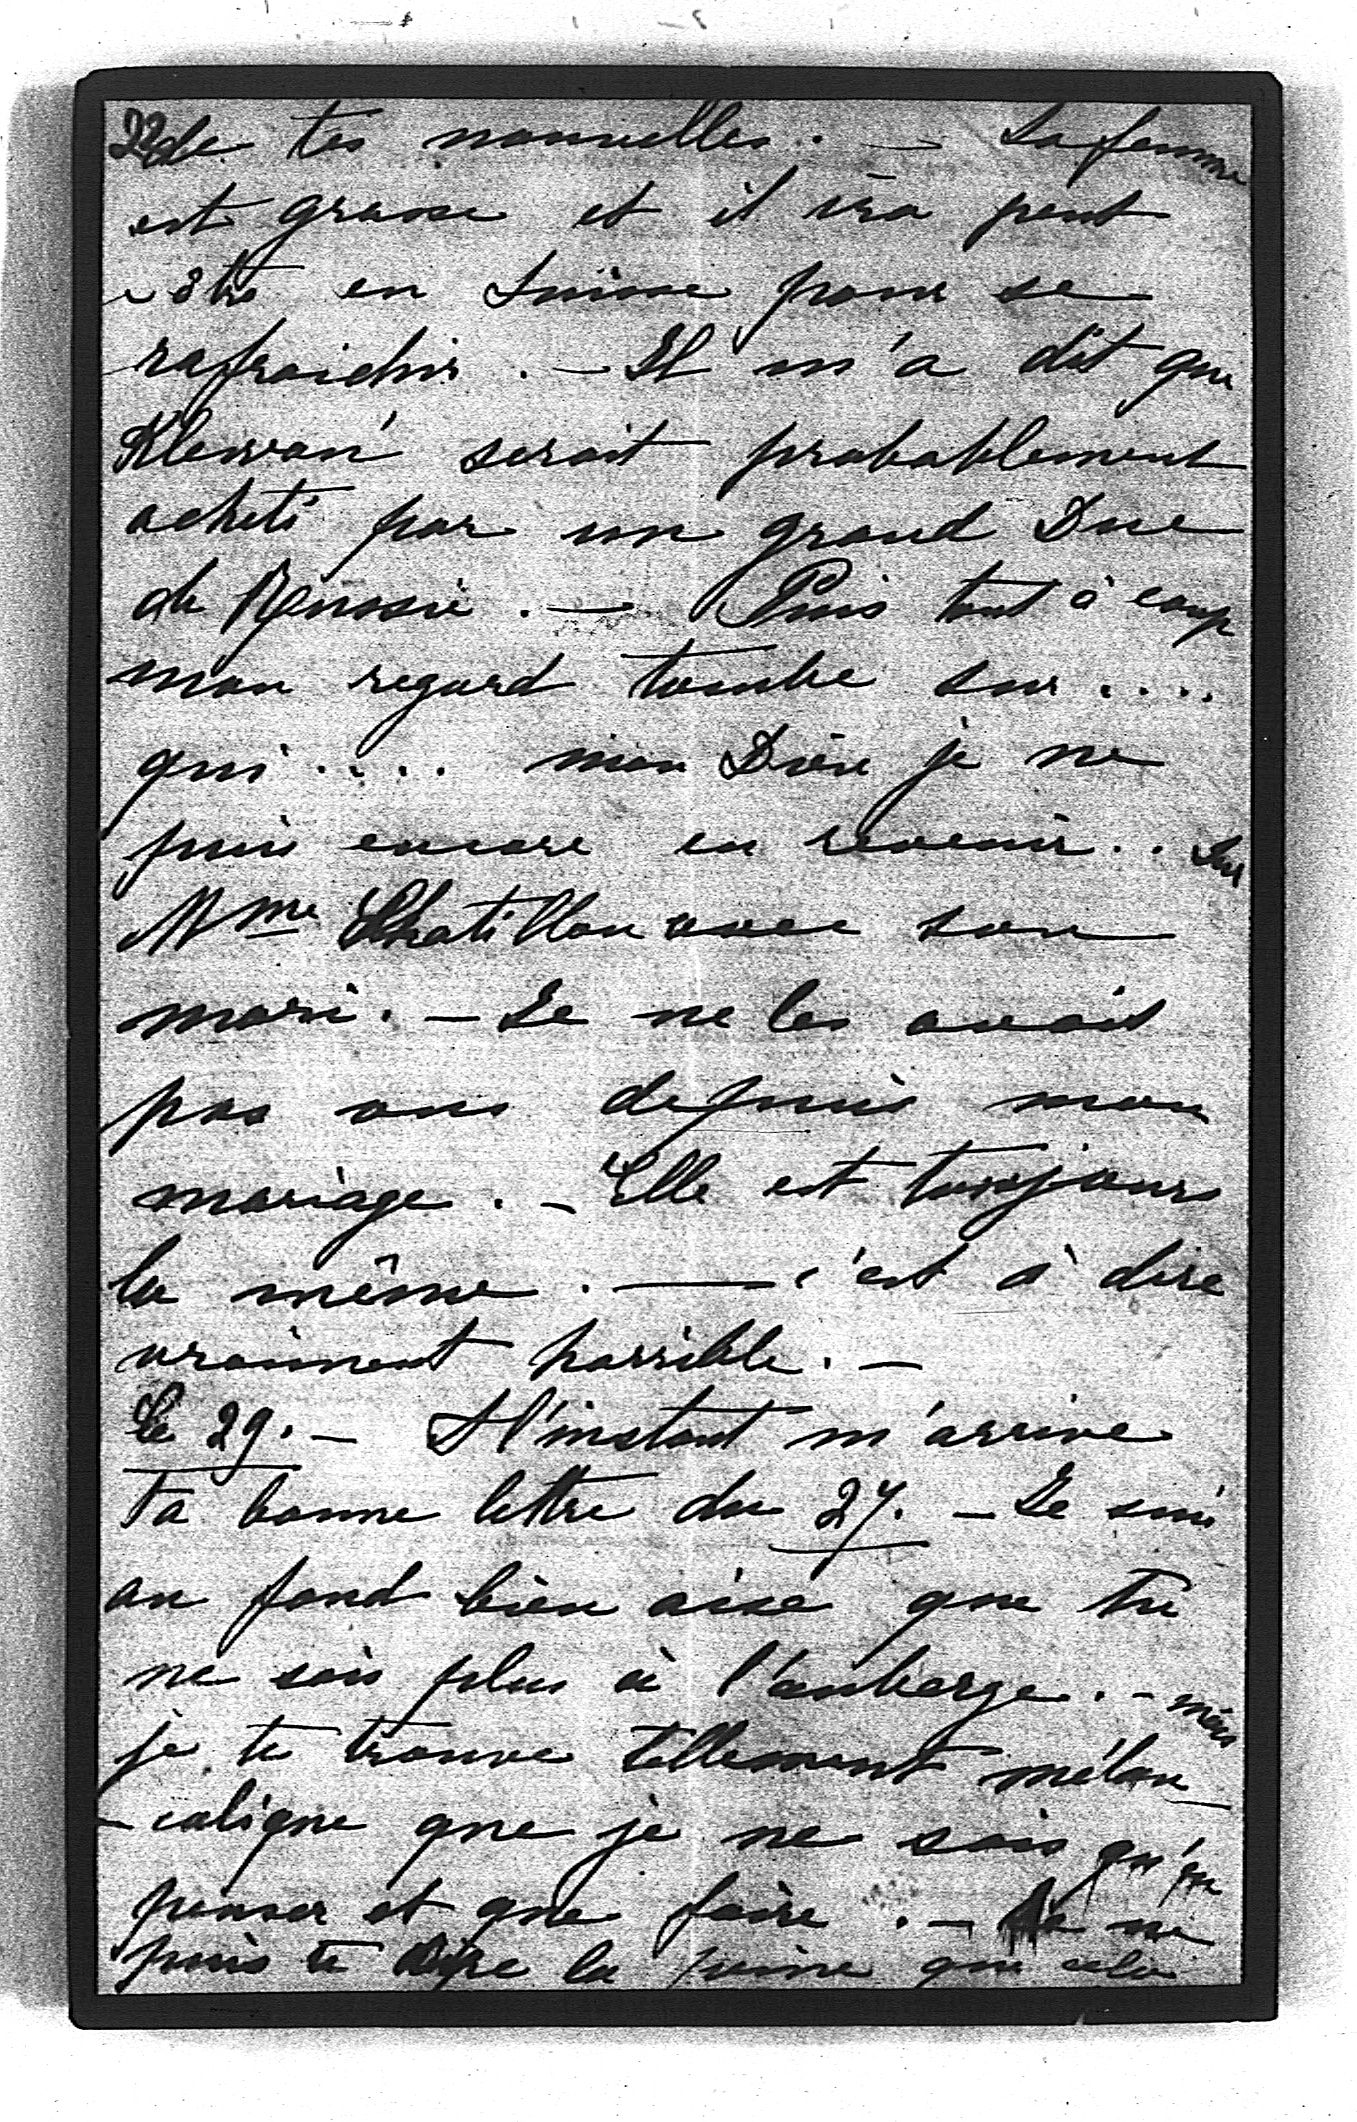 22 de tes nouvelles. — Sa femme
est grosse et il ira peut
être en Suisse pour se
rafraichir. — Il m'a dit que
Klewan serait probablement
acheté par un grand Duc
de Russie. — Puis tout à coup
mon regard tombe sur ....
qui .... mon Dieu je ne
puis encore en revenir.. Sur
Mme Chatillon avec son
mari. — Je ne les avait
pas vus depuis mon
mariage. — Elle est toujours
la même. — c'est à dire
vraiment horrible. —
Le 29. — A l'instant m'arrive
ta bonne lettre du 27. — Je suis
au fond bien aise que tu
ne sois plus à l'auberge. — mais
je te trouve tellement mélan
colique que je ne sais qu'en
penser et que faire. — Je ne
puis te dire la peine que cela